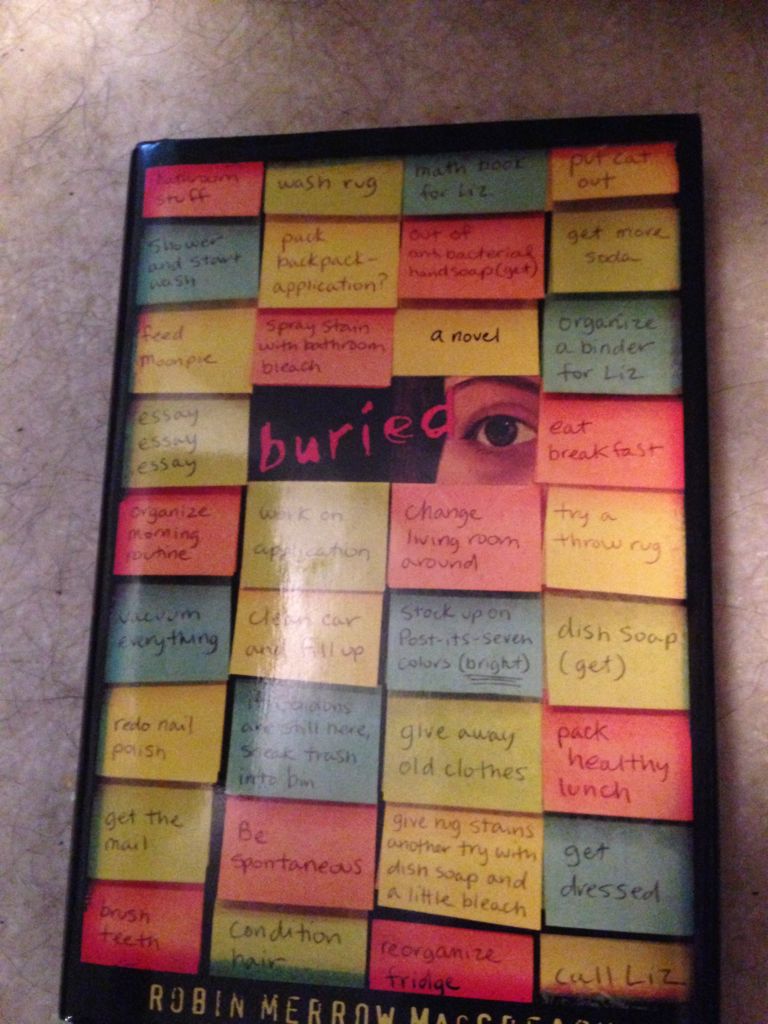 bathroom
stuff
wash rug
math book
for Liz
put cat
out
Shower
and start
wash
pack
backpack-
application?
out of
antibacterial
handsoap (get)
get more
soda
feed
moonpie
spray stain
with bathroom
bleach
a novel
organize
a binder
for Liz
essay
essay
essay
buried
eat
breakfast
organize
morning
routine
work on
application
change
living room
around
try a
throw rug
vacuum
everything
clean car
and fill up
Stock up on
Post-its-seven
colors (bright)
dish soap
(get)
redo nail
polish
if
are still here,
sneak trash
into bin
give away
old clothes
pack
healthy
lunch
get the
mail
Be
spontaneous
give rug stains
another try with
dish soap and
a little bleach
get
dressed
brush
teeth
condition
hair
reorganize
fridge
call Liz
ROBIN MERROW